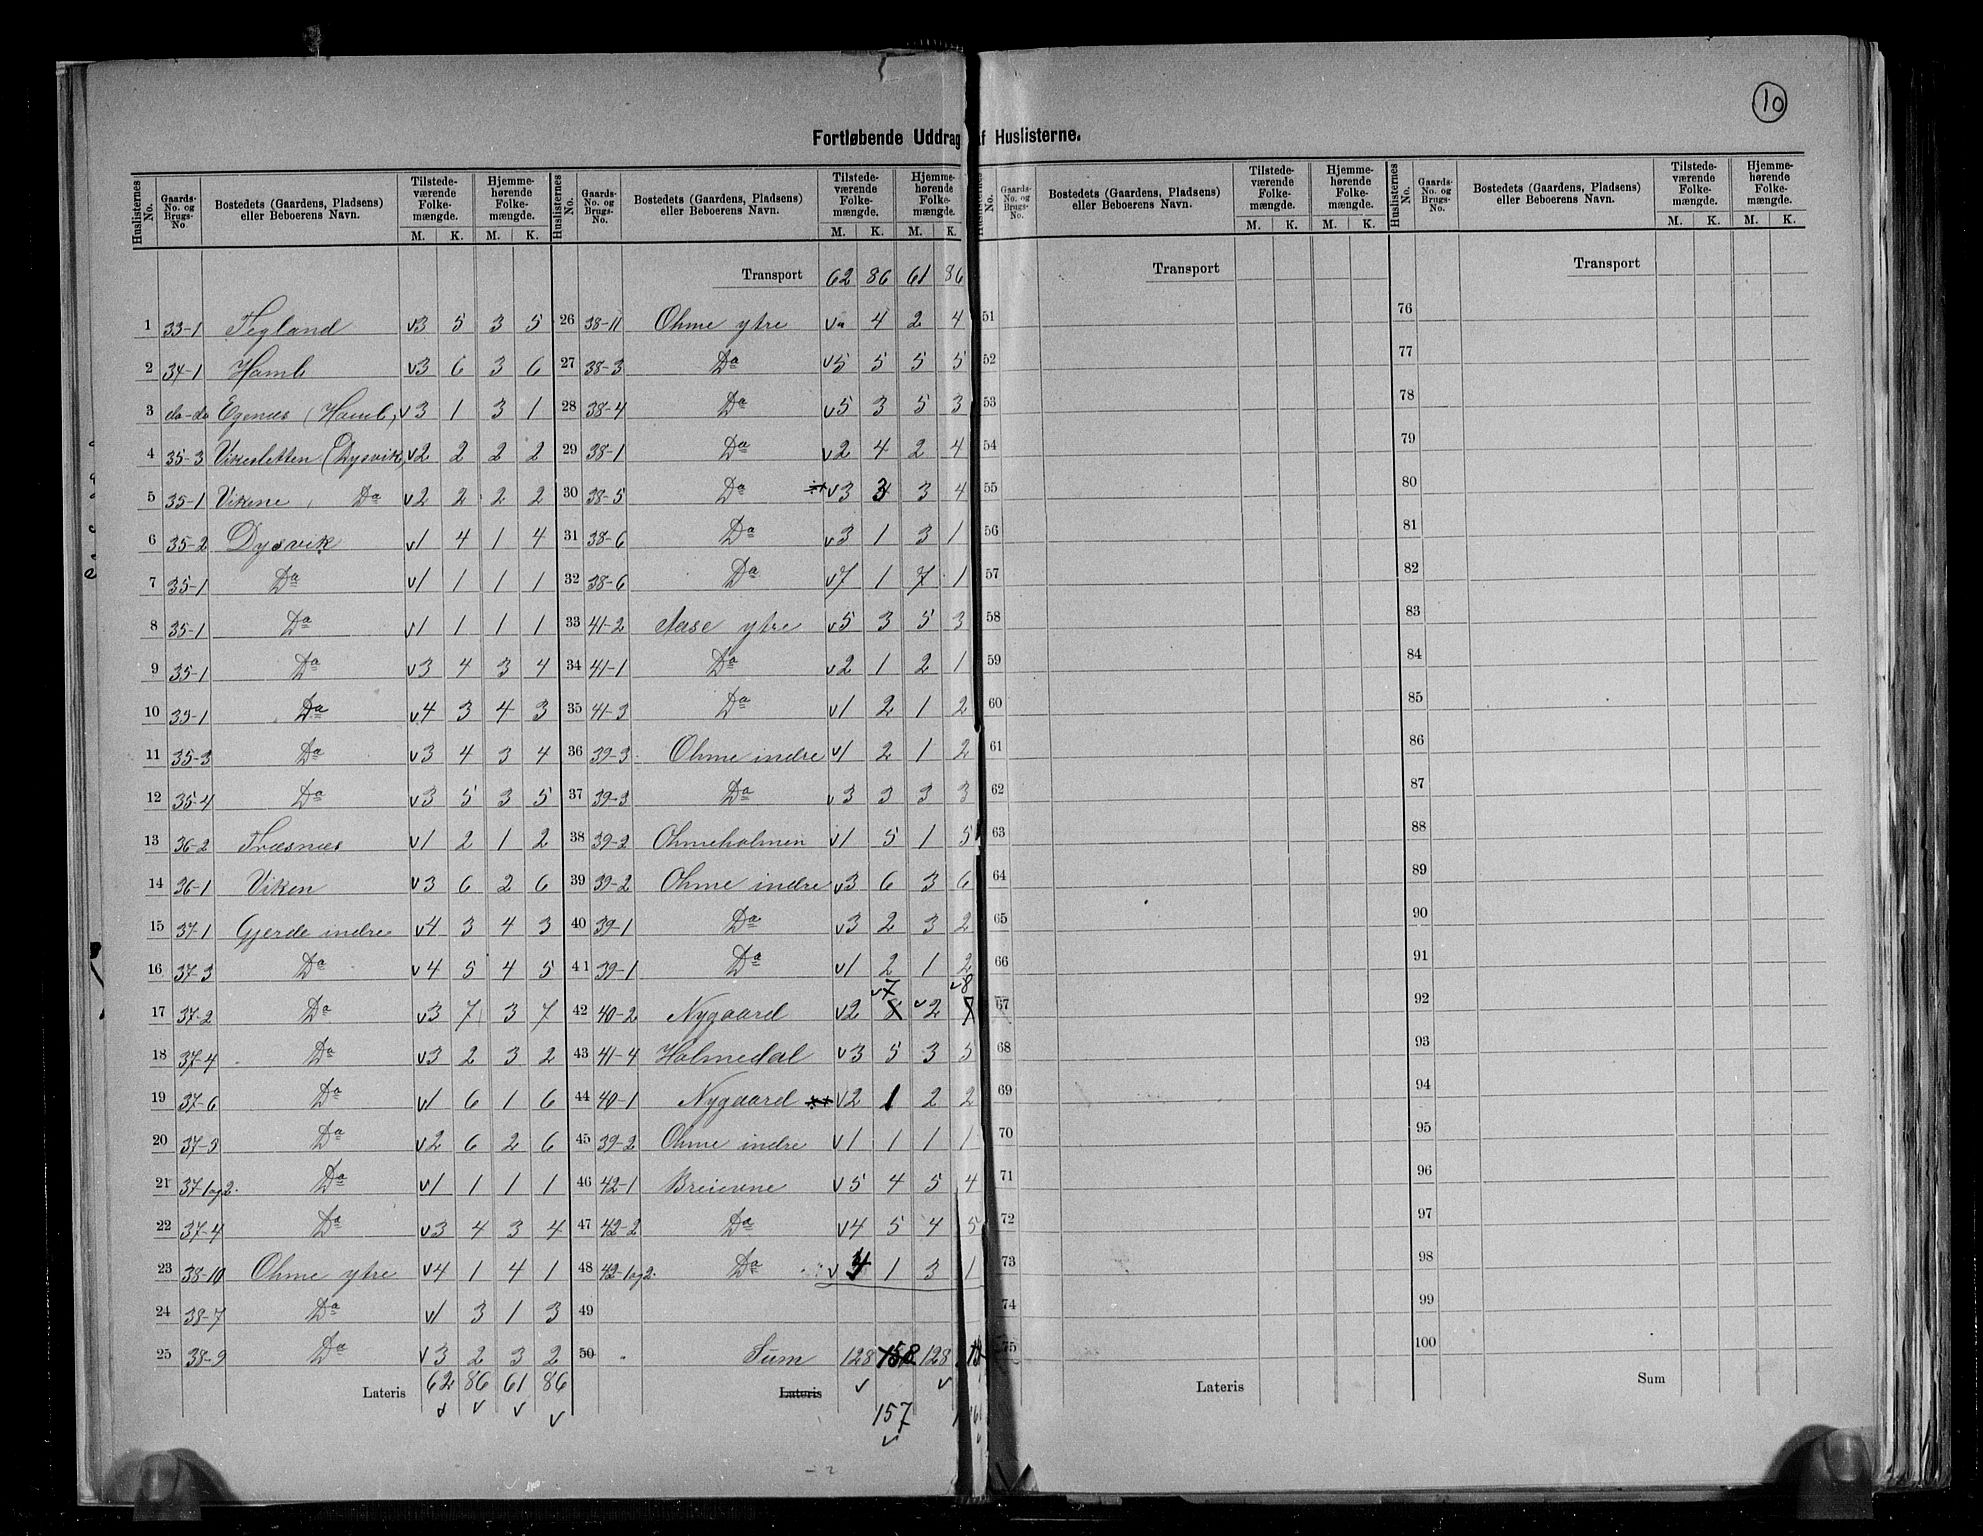 10
Fortløbende Uddrag af Huslisterne.
Huslisternes No. Gaards-No. og Brugs-No. Bostedets (Gaardens, Pladsens) eller Beboerens Navn. Tilstedeværende Folkemængde. M. K. Hjemmehørende Folkemængde. M. K.
1 33-1 Tegland v3 5 3 5
2 34-1 Hamb v3 6 3 6
3 do-do Egenæs (Hamb) v3 1 3 1
4 35-3 Vikesletten (Dysvik) v2 2 2 2
5 35-1 Vikene, Da v2 2 2 2
6 35-2 Dysvik v1 4 1 4
7 35-1 Da v1 1 1 1
8 35-1 Da v1 1 1 1
9 35-1 Da v3 4 3 4
10 35-1 Da v4 3 4 3
11 35-3 Da v3 4 3 4
12 35-4 Da v3 5 3 5
13 36-2 Træsnæs v1 2 1 2
14 36-1 Viken v3 6 2 6
15 37-1 Gjerde indre v4 3 4 3
16 37-3 Da v4 5 4 5
17 37-2 Da v3 7 3 7
18 37-4 Da v3 2 3 2
19 37-6 Da v1 6 1 6
20 37-3 Da v2 6 2 6
21 37-1og2. Da v1 1 1 1
22 37-4 Da v3 4 3 4
23 38-10 Ohme ytre v4 1 4 1
24 38-7 Da v1 3 1 3
25 38-9 Da v3 2 3 2
Lateris 62 86 61 86
Huslisternes No. Gaards-No. og Brugs-No. Bostedets (Gaardens, Pladsens) eller Beboerens Navn. Tilstedeværende Folkemængde. M. K. Hjemmehørende Folkemængde. M. K.
Transport 62 86 61 86
26 38-11 Ohme ytre v 4 2 4
27 38-3 Da v5 5 5 5
28 38-4 Da v5 3 5 3
29 38-1 Da v2 4 2 4
30 38-5 Da v3 3 3 4
31 38-6 Da v3 1 3 1
32 38-6 Da v7 1 7 1
33 41-2 Aase ytre v5 3 5 3
34 41-1 Da v2 1 2 1
35 41-3 Da v1 2 1 2
36 39-3 Ohme indre v1 2 1 2
37 39-3 Da v3 3 3 3
38 39-2 Ohmeholmen v1 5 1 5
39 39-2 Ohme indre v3 6 3 6
40 39-1 Da v3 2 3 2
41 39-1 Da v1 2 1 2
v7 v8
42 40-2 Nygaard v2 8 v2 7
43 41-4 Holmedal v3 5 3 5
44 40-1 Nygaard v2 1 2 2
45 39-2 Ohme indre v1 1 1 1
46 42-1 Breierne v5 4 5 4
47 42-2 Da v4 5 4 5
48 42-1og2. Da v 1 3 1
49
50 Sum 128 158 128
Lateris
157
Huslisternes No. Gaards-No. og Brugs-No. Bostedets (Gaardens, Pladsens) eller Beboerens Navn. Tilstedeværende Folkemængde. M. K. Hjemmehørende Folkemængde. M. K.
Transport
51
52
53
54
55
56
57
58
59
60
61
62
63
64
65
66
67
68
69
70
71
72
73
74
75
Lateris
Huslisternes No. Gaards-No. og Brugs-No. Bostedets (Gaardens, Pladsens) eller Beboerens Navn. Tilstedeværende Folkemængde. M. K. Hjemmehørende Folkemængde. M. K.
Transport
76
77
78
79
80
81
82
83
84
85
86
87
88
89
90
91
92
93
94
95
96
97
98
99
100
Sum